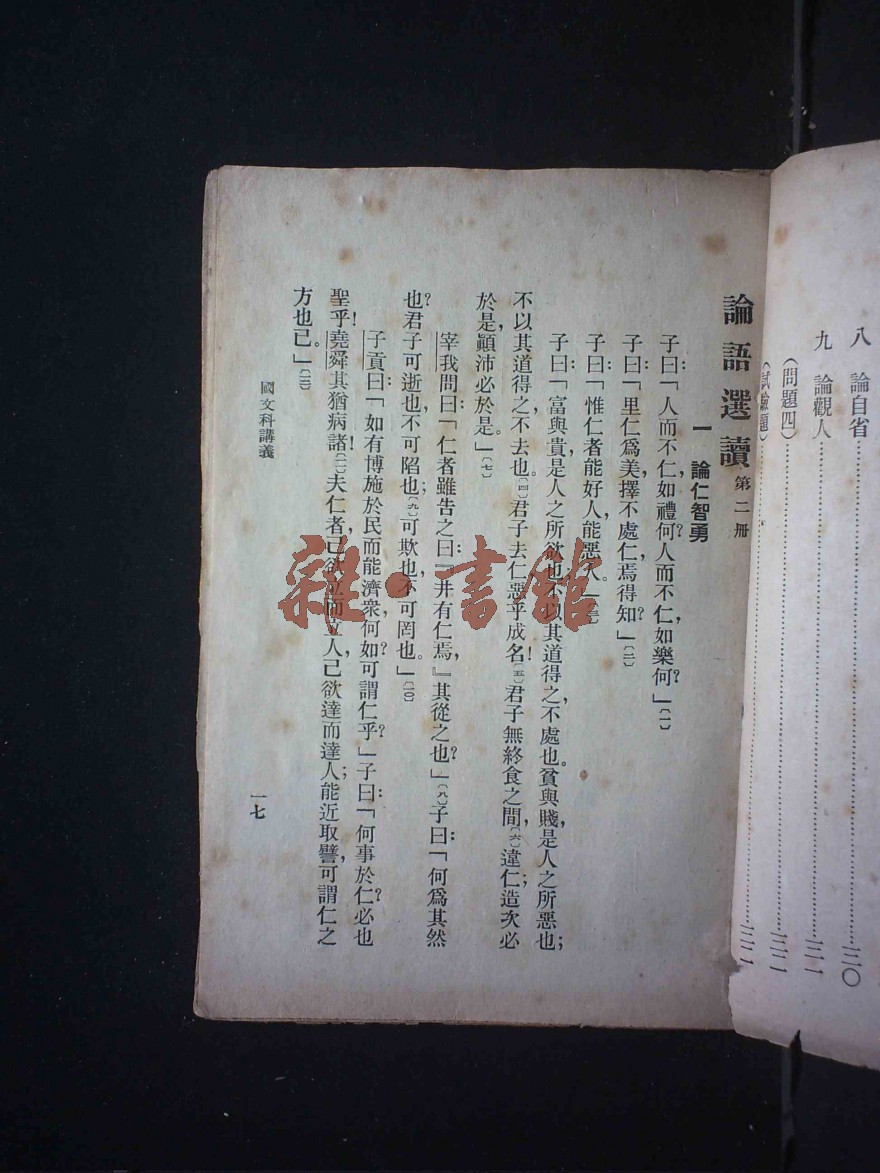 八　論自省……三〇
九　論觀人……三一
（問題四）……三二
（試驗題）……三二
論語選讀　第二冊
一　論仁智勇
子曰：「人而不仁，如禮何？人而不仁，如樂何？」〔一〕
子曰：「里仁爲美，擇不處仁，焉得知？」〔二〕
子曰：「惟仁者能好人，能惡人。」〔三〕
子曰：「富與貴，是人之所欲也，不以其道得之，不處也。貧與賤，是人之所惡也；
不以其道得之，不去也。〔四〕君子去仁，惡乎成名！〔五〕君子無終食之間，〔六〕違仁；造次必
於是，顚沛必於是。」〔七〕
宰我問曰：「仁者雖告之曰：『井有仁焉，』其從之也？」〔八〕子曰：「何爲其然
也？君子可逝也，不可陷也；〔九〕可欺也，不可罔也。」〔一〇〕
子貢曰：「如有博施於民而能濟衆，何如？可謂仁乎？」子曰：「何事於仁必也
聖乎！堯舜其猶病諸！〔一一〕夫仁者，己欲立而立人，己欲達而達人；能近取譬，可謂仁之
方也已。」〔一二〕
國文科講義
一七
雜·書館